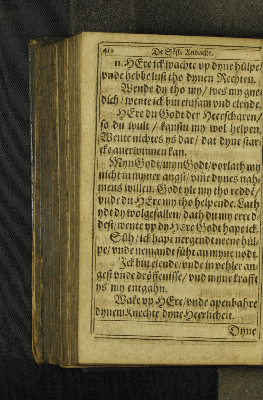 412 De Söst. Andacht.
n. HEre ick wachte vp dyne hülpe/
vnde hebbe lust tho dynen Rechten.
Wende dy tho my / wes my gne-
dich / wente ick bin einsam vnd elende.
HEre du Godt der Heerscharen/
so du wult / kanstu my wol helpen.
Wente nichtes ys dar / dat dyne star-
cke auerwinnen kan.
Myn Godt / myn Godt / vorlath my
nicht in myner angst / vmme dynes nah-
mens willen. Godt yle my tho redde/
vnde du HEre my tho helpende. Lath
ydt dy wolgefallen / dath du my err
dest / wente vp dy HEre Godt hape ick.
Süh / ick hape nergendt neene hül-
pe / vnde nemandt süht an myne nodt.
Ick bin elende / vnde in veler an-
gest vnde dröffenisse / vnd myne krafft
ys my entgahn.
Wake vp HEre / vnde apenbahre
dynem Knechte dyne Heerlicheit.
Dyne